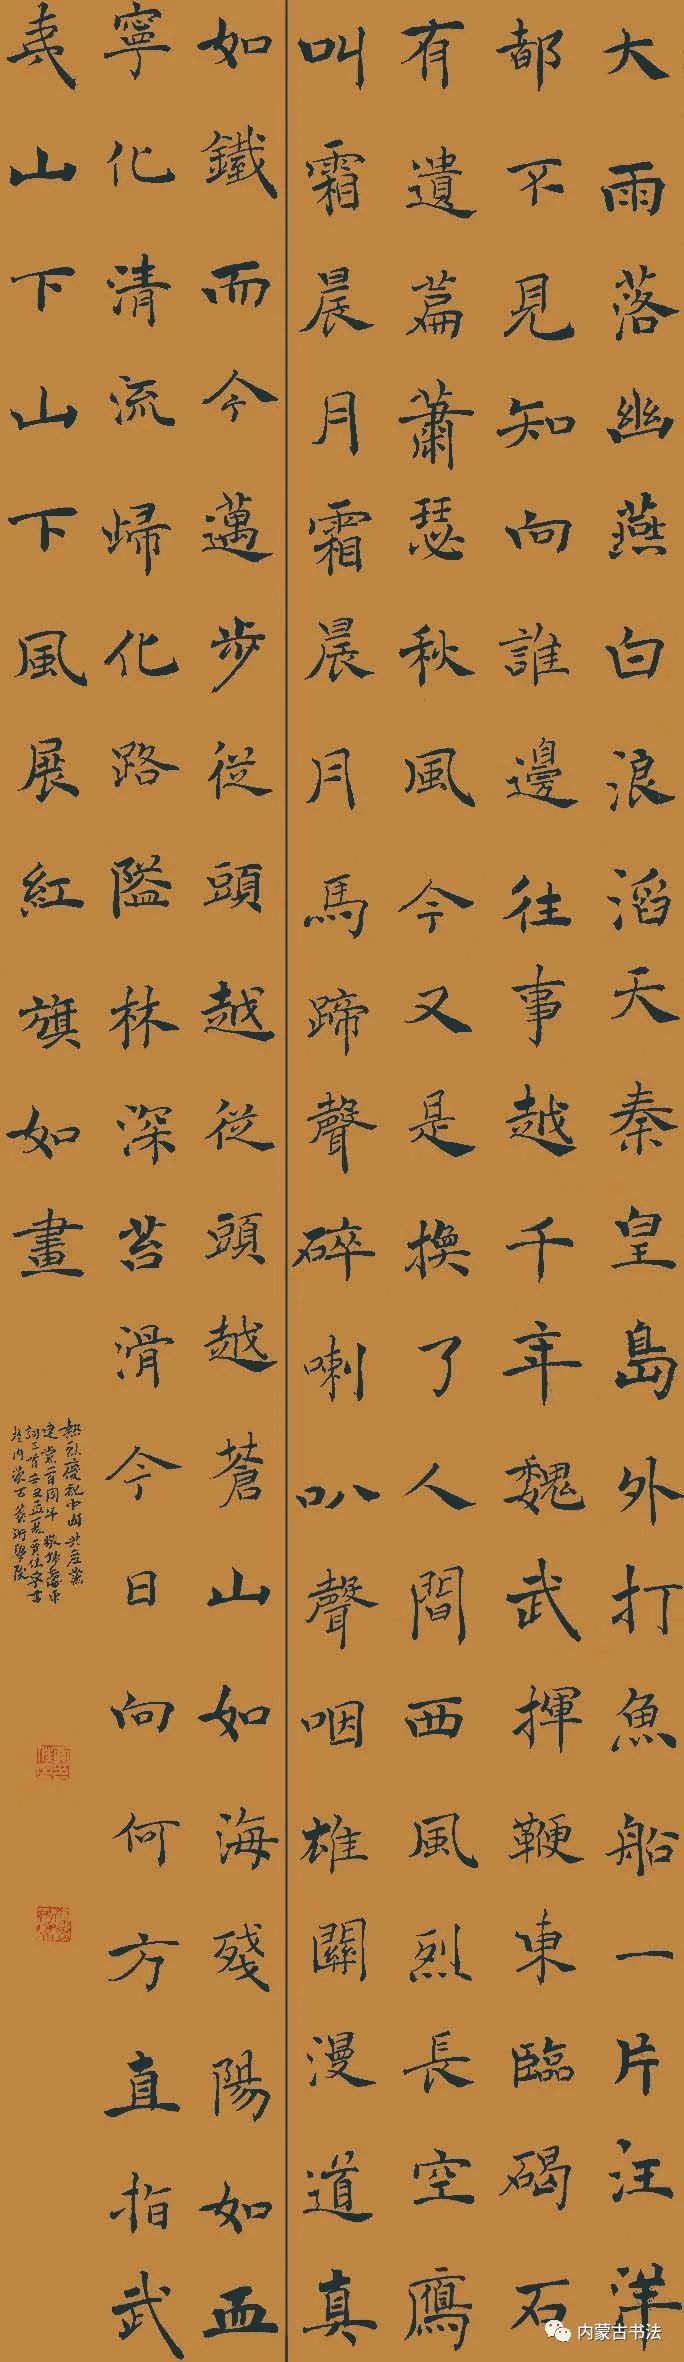 大雨落幽燕白浪滔天秦皇島外打魚船一片汪洋
都不見知向誰邊往事越千年魏武揮鞭東臨碣石
有遺篇蕭瑟秋風今又是換了人間西風烈長空鴈
叫霜晨月霜晨月馬蹄聲碎喇叭聲咽雄關漫道真
如鐵而今邁步從頭越從頭越蒼山如海殘陽如血
寧化清流歸化路隘林深苔滑今日向何方直指武
夷山下山下風展紅旗如畫
熱烈慶祝中國共產黨
建黨一百周年敬抄
詞三首辛丑孟夏書
於內蒙古藝術學院
内蒙古书法